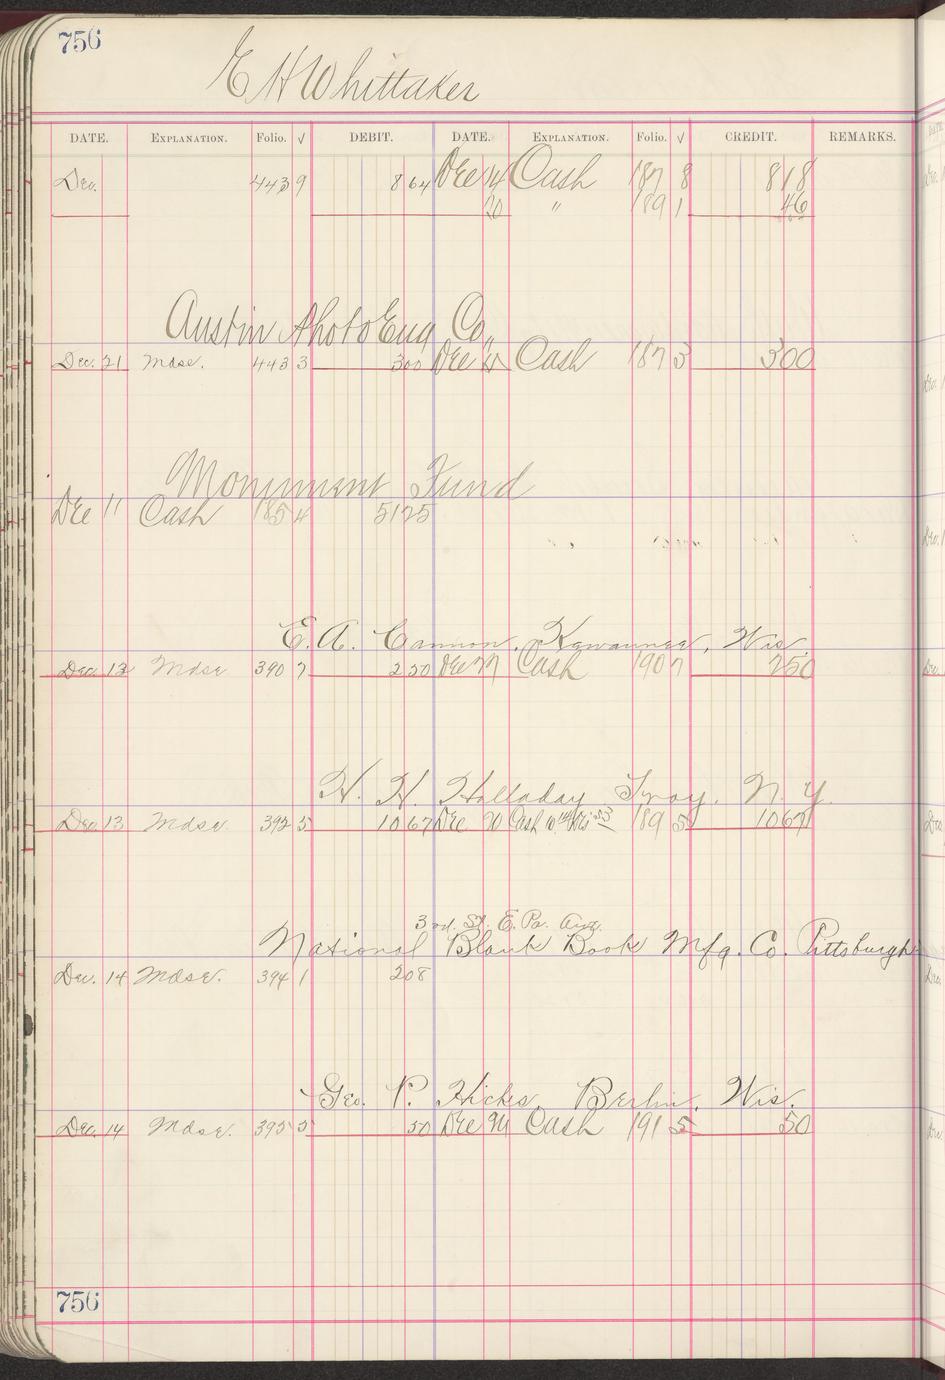 756
E H Whittaker
DATE. EXPLANATION. Folio. √ DEBIT. DATE. EXPLANATION. Folio. √ CREDIT. REMARKS.
Dec. 443 9 8 64 Dec 14 Cash 187 8 8 18
20 " 189 1 46
Austin Photo Eng Co.
Dec. 21 Mdse. 443 3 3 00 Dec Cash 187 3 3 00
Monument Fund
Dec 11 Cash 185 4 51 25
E. A. Cannon, Kewaunee, Wis.
Dec. 13 Mdse 390 7 2 50 Dec 27 Cash 190 7 2 50
H. H. Holladay Troy, N. Y.
Dec. 13 Mdse. 392 5 10 67 Dec 20 Cash 189 5 10 67
3rd. St. E. Pa. Ave.
National Blank Book Mfg. Co. Pittsburgh
Dec. 14 Mdse. 394 1 2 08
Geo. P. Hicks, Berlin, Wis.
Dec. 14 Mdse. 395 5 50 Dec Cash 191 5 50
756